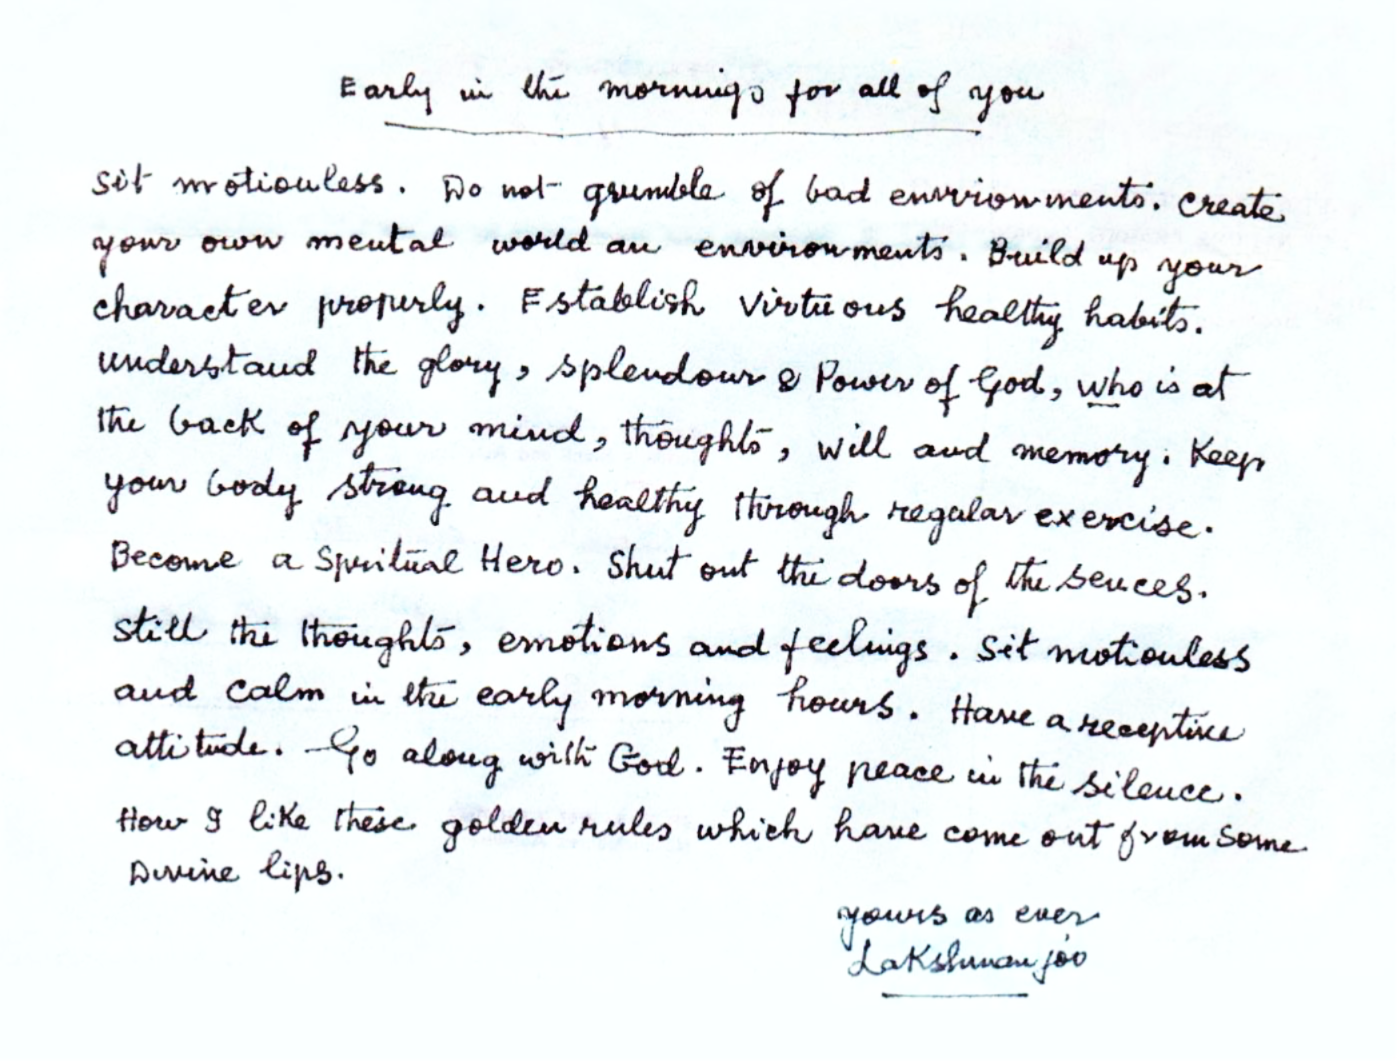 Early in the mornings for all of you
Sit motionless. Do not grumble of bad envrironments. Create
your own mental world an environments. Build up your
character properly. Establish virtuous healthy habits.
Understand the glory, splendour & Power of God, who is at
the back of your mind, thoughts, will and memory. Keep
your body strong and healthy through regular exercise.
Become a Spiritual Hero. Shut out the doors of the sences.
Still the thoughts, emotions and feelings. Sit motionless
and calm in the early morning hours. Have a receptive
attitude. Go along with God. Enjoy peace in the silence.
How I like these golden rules which have come out from some
Divine lips.
yours as ever
Lakshman joo